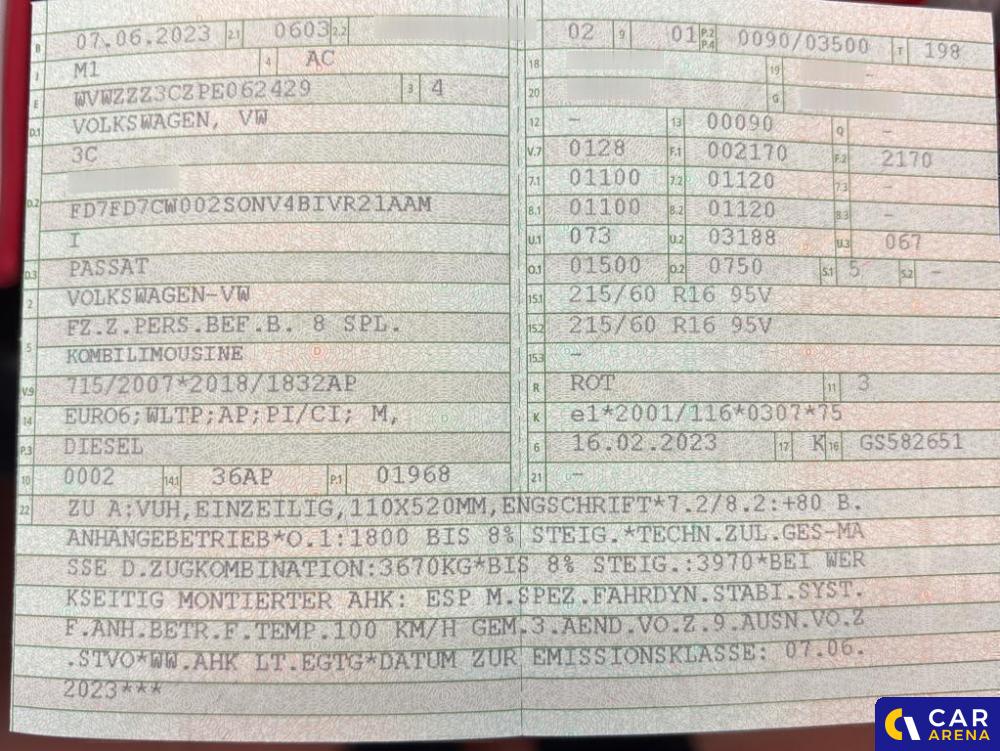 B 07.06.2023 2.1 0603 2.2
J M1 4 AC
E WVWZZZ3CZPE062429 3 4
D.1 VOLKSWAGEN, VW
3C
D.2
FD7FD7CW002SONV4BIVR21AAM
I
D.3 PASSAT
2 VOLKSWAGEN-VW
FZ.Z.PERS.BEF.B. 8 SPL.
5 KOMBILIMOUSINE
V.9 715/2007*2018/1832AP
14 EURO6;WLTP;AP;PI/CI; M,
P.3 DIESEL
10 0002 14.1 36AP P.1 01968
02 9 01 P.2 P.4 0090/03500 T 198
18 19 -
20 G
12 - 13 00090 Q -
V.7 0128 F.1 002170 F.2 2170
7.1 01100 7.2 01120 7.3 -
8.1 01100 8.2 01120 8.3 -
U.1 073 U.2 03188 U.3 067
O.1 01500 O.2 0750 S.1 5 S.2 -
15.1 215/60 R16 95V
15.2 215/60 R16 95V
15.3 -
R ROT 11 3
K e1*2001/116*0307*75
6 16.02.2023 17 K 16 GS582651
21 -
22 ZU A:VUH,EINZEILIG,110X520MM,ENGSCHRIFT*7.2/8.2:+80 B.
ANHÄNGEBETRIEB*O.1:1800 BIS 8% STEIG.*TECHN.ZUL.GES-MA
SSE D.ZUGKOMBINATION:3670KG*BIS 8% STEIG.:3970*BEI WER
KSEITIG MONTIERTER AHK: ESP M.SPEZ.FAHRDYN.STABI.SYST.
F.ANH.BETR.F.TEMP.100 KM/H GEM.3.AEND.VO.Z.9.AUSN.VO.Z
.STVO*WW.AHK LT.EGTG*DATUM ZUR EMISSIONSKLASSE: 07.06.
2023***
CAR
ARENA